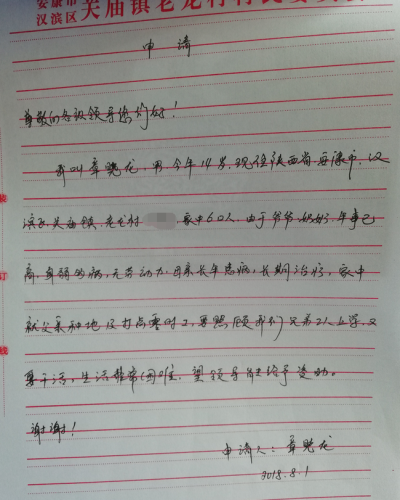 安康市
汉滨区 关庙镇老龙村村民委员会
申请
尊敬的各级领导你们好！
我叫章晓龙，男，今年14岁，现住陕西省安康市，汉
滨区，关庙镇，老龙村 家中6口人，由于爷爷、奶奶，年事已
高，身弱多病，无劳动力，母亲长年患病，长期治疗，家中
就父亲种地及打点零时工，要照顾我们兄弟2人上学，又
要干活，生活非常困难，望领导能给予资助。
谢谢！
申请人：章晓龙
2018.8.1
装
订
线